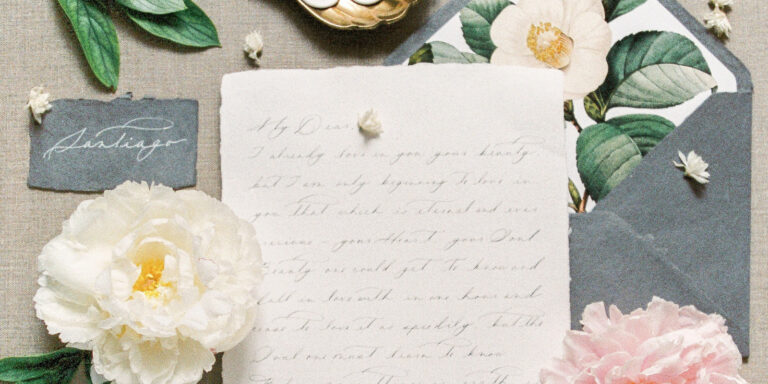 Santiago
My Dear,
I already love in you your beauty,
but I am only beginning to love in
you that which is eternal and ever
precious - your Heart, your Soul.
Beauty one could get to know and
fall in love with in one hour and
cease to love it as speedily, but the
Soul one must learn to know